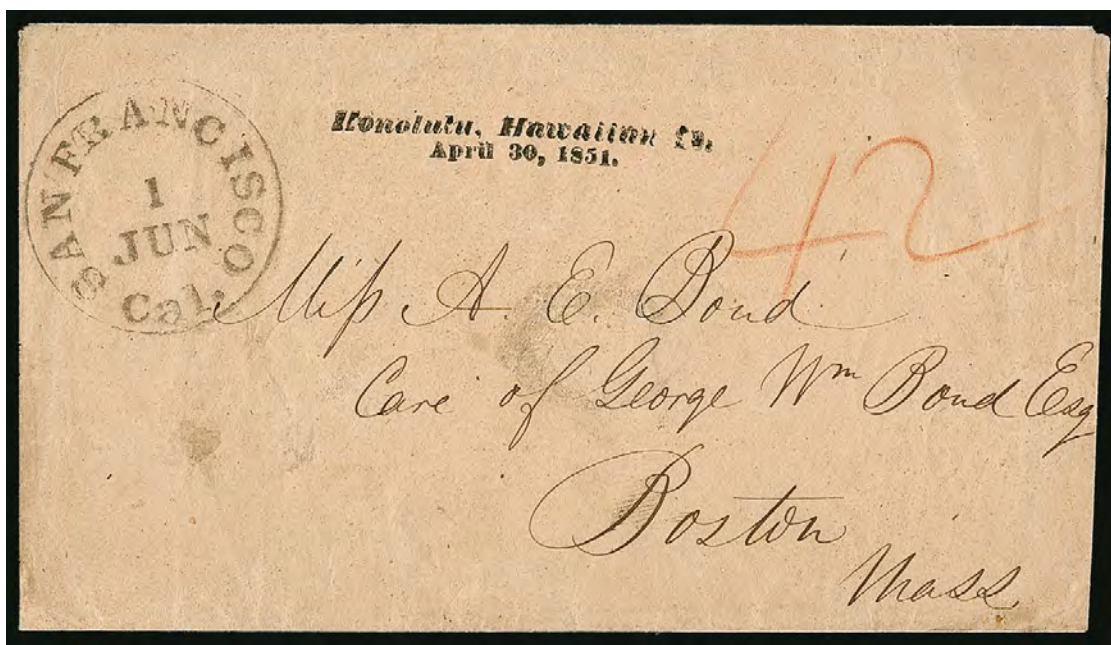 SAN FRANCISCO
1
JUN
Cal.
Honolulu, Hawaiian Is.
April 30, 1851.
42
Miss A. E. Bond
Care of George Wm Bond Esq
Boston
Mass